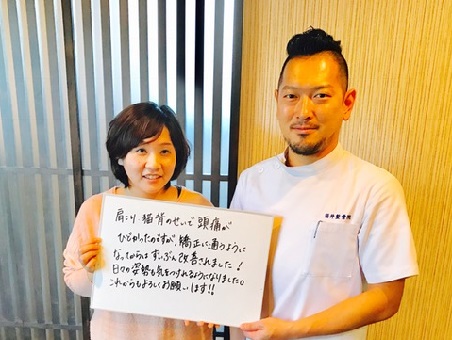 肩こり、猫背のせいで頭痛が
ひどかったのですが矯正に通うように
なってからはずいぶん改善されました!
日々の姿勢も気をつけれるようになりました。
これからもよろしくお願いします!!
整骨院